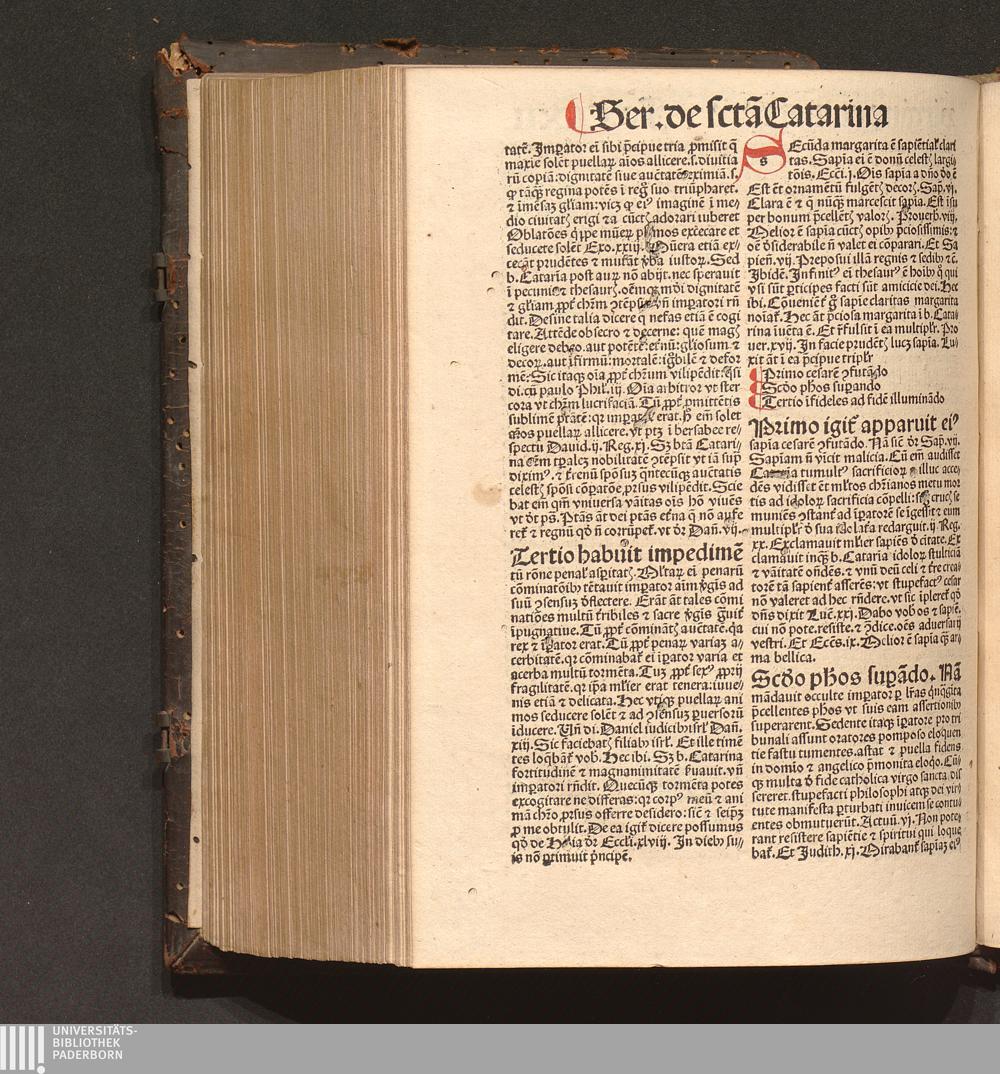 Ser. de sctã Catarina
tatē. Impator ei sibi p̄cipue tria p̄misit q̄
maxīe solēt puellaꝝ aīos allicere. s. diuitia
rū copiā: dignitatē siue auc̄tatē eximiā. s.
ꝙ tāqꝫ regina potēs ī reg̃ suo triūpharet.
⁊ īmēsaꝫ gl̃iam: vicꝫ ꝙ eiꝰ imaginē ī me-
dio ciuitatꝫ erigi ⁊ a cūctꝫ adorari iuberet
Oblatōes q̄ppe mūeꝝ mos excecare et
seducere solēt Exo. xxiij. Mūera etiā ex-
cecāt prudētes ⁊ mutāt v̄ba iustoꝝ. Sed
b. Cataria post auꝝ nō abijt. nec sperauit
ī pecunia ⁊ thesaurꝫ. oēmqꝫ mōi dignitatē
⁊ gl̃iam ꝓpt̄ ch̃m ꝯtēpsit vñ impatori rñ
dit. Desine talia dicere q̄ nefas etiā ē cogi
tare. Attēde obsecro ⁊ decerne: quē magꝫ
eligere debeo. aut potētē: et̄nū: gl̃iosum ⁊
decoꝝ. aut īfirmū: mortalē: ignobilē ⁊ defor
mē: Sic itaqꝫ oīa ꝓpt̄ ch̃um vilipēdit.
di. cū paulo Phil. iij. Oīa arbitror vt ster
cora vt ch̃m lucrifaciā. Tū ꝓpt̄ p̄mittētis
sublimē p̄tātē: qꝛ impator erat. H̄ em̄ solet
aīos puellaꝝ allicere. vt ptꝫ ī bersabee re-
spectu Dauid. ij. Reg. xj. Sꝫ btā Catari-
na oēm tꝑalcꝫ nobilitatē ꝯtēpsit vt iā sup̄
diximꝰ. ⁊ et̄renū spōsuꝫ q̄ntecūqꝫ auc̄tatis
celestꝫ spōsi cōpatōe, prsus vilipēdit. Scie
bat em̄ qm̄ vniuersa vāitas oīs hō viuēs
vt dt ps. Ptās āt dei ptās et̄na q̄ nō aufe
ret̄ ⁊ regnū qd̄ ñ corrūpet̄. vt dr̄ Dañ. vij.
Tertio habuit impedimē
tū rōne penal' aspitatꝫ. Ml'taꝝ ei penarū
cōminatōibꝰ tētauit impator aīm v̄gīs ad
suū ꝯsensuꝫ d̄flectere. Erāt āt tales cōmi
natiōes multū t̄ribiles ⁊ sacre v̄gīs g̃uit̄
īpugnatiue. Tū ꝓpt̄ cōminātꝫ auc̄tatē. qꝛ
rex ⁊ īpator erat. Tū ꝓpt̄ penaꝝ variaꝫ a-
cerbitatē. qꝛ cōminabat̄ ei īpator varia et
acerba multū tormēta. Tuꝫ ꝓpt̄ sexꝰ ꝓprij
fragilitatē. qꝛ ip̄a ml'ier erat tenera: iuue-
nis etiā ⁊ delicata. Hec vtiqꝫ puellaꝝ ani
mos seducere solēt ⁊ ad ꝯsensuꝫ ꝑuersorū
īducere. Vñ di. Daniel iudicibꝰ isrl̄ Dañ.
xiij. Sic faciebatꝫ filiabꝰ isrl̄. Et ille timē
tes loq̄bāt̄ vob. Hec ibi. Sꝫ b. Catarina
fortitudinē ⁊ magnanimitatē ẜuauit. vñ
impatori rñdit. Quecūqꝫ tormēta potes
excogitare ne differas: qꝛ corpꝰ meū ⁊ ani
mā ch̃ro prsus offerre desidero: sic̄ ⁊ seip̄ꝫ
ꝓ me obtulit. De ea igit̄ dicere possumus
qd̄ de Helia dr̄ Eccli. xlviij. In diebꝰ su-
is nō ꝑtimuit p̄ncipē.
s Ecūda margarita ē sapiētial' clari
tas. Sapīa ei ē donū celestꝫ largi
tōis. Ecci. j. Oīs sapīa a dño deo ē
Est ēt ornamētū fulgētꝫ decorꝫ. Sap. vj.
Clara ē ⁊ q̄ nūqꝫ marcescit sapīa. Est isu
per bonum p̄cellētꝫ valorꝫ. Prouerb. viij.
Melior ē sapīa cūctꝫ opibꝰ p̄ciosissimis: ⁊
oē d̄siderabile ñ valet ei cōparari. Et Sa
pien. vij. Preposui illā regnis ⁊ sedibꝰ ⁊c.
Ibidē. Infinitꝰ ei thesaurꝰ ē hoībꝰ q̄ qui
vsi sūt ꝑticipes facti sūt amicicie dei. Hec
ibi. Cōueniēt̄ g̊ sapīe claritas margarita
noīat̄. Hec āt p̄ciosa margarita ī b. Cata-
rina īuēta ē. Et r̄fulsit ī ea multipl̄r. Pro
uer. xvij. In facie prudētꝫ lucꝫ sapīa. Lu-
xit āt ī ea p̄cipue tripl̄r
Primo cesarē ꝯfutādo
Scd̄o phos supando
Tertio īfideles ad fidē illuminādo
Primo igit̄ apparuit eiꝰ
sapīa cesarē ꝯfutādo. Nā sic̄ dr̄ Sap. vij.
Sapīam ñ vicit malicia. Cū em̄ audisset
Cataria tumultꝰ sacrificioꝝ ⁊ illuc acce-
dēs vidisset et ml'tos ch̃rianos metu mor
tis ad idoloꝝ sacrificia cōpelli: crucꝫ se
muniēs ꝯstant̄ ad īpatorē se īgessit ⁊ eum
multipl̄r d̄ sua idolat̄a redarguit. ij. Reg.
xx. Exclamauit ml'ier sapiēs d̄ citate. Ex
clamauit inqꝫ b. Cataria idoloꝝ stulticiā
⁊ vāitatē oñdēs. ⁊ vnū deū celi ⁊ t̄re crea-
torē tā sapient̄ asserēs: vt stupefactꝰ cesar
nō valeret ad hec rñdere. vt sic īpleret̄ qd̄
dñs dixit Luc̄. xxi. Dabo vob os ⁊ sapīē.
cui nō pote. resiste. ⁊ ꝯdice. oēs aduersarij
vestri. Et Eccēs. ix. Melior ē sapīa qꝫ ar-
ma bellica.
Scd̄o phos supādo. Nā
mādauit occulte impator ꝑ lr̄as qn̄q̄gīta
p̄cellentes phos vt suis eam assertionibꝰ
superarent. Sedente itaqꝫ īpatore pro tri
bunali assunt oratores pomposo eloquen
tie fastu tumentes. astat ⁊ puella fidens
in domīo ⁊ angelico p̄monita eloq̊. Cū-
qꝫ multa d̄ fide catholica virgo sancta dis
sereret. stupefacti philosophi atqꝫ dei vir-
tute manifesta ꝑturbati inuicem se contu-
entes obmutuerūt. Actuū. vj. Non pote-
rant resistere sapiētie ⁊ spiritui qui loque
bat̄. Et Judith. xj. Mirabant̄ sapīaꝫ eiꝰ
UNIVERSITÄTS-
BIBLIOTHEK
PADERBORN